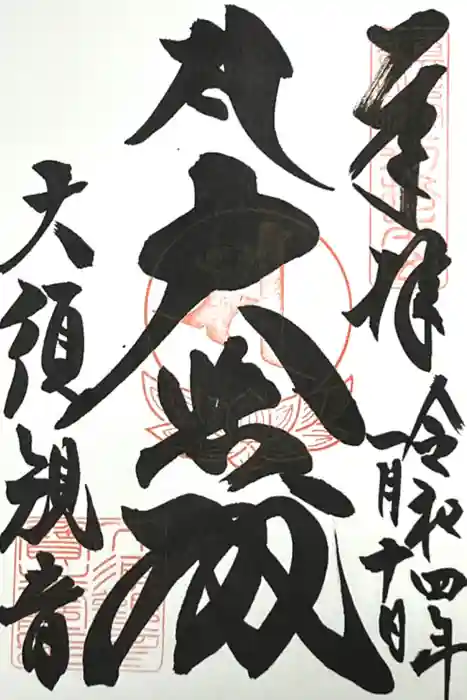 奉拝
令和四年
一月十日
大悲殿
大須観音